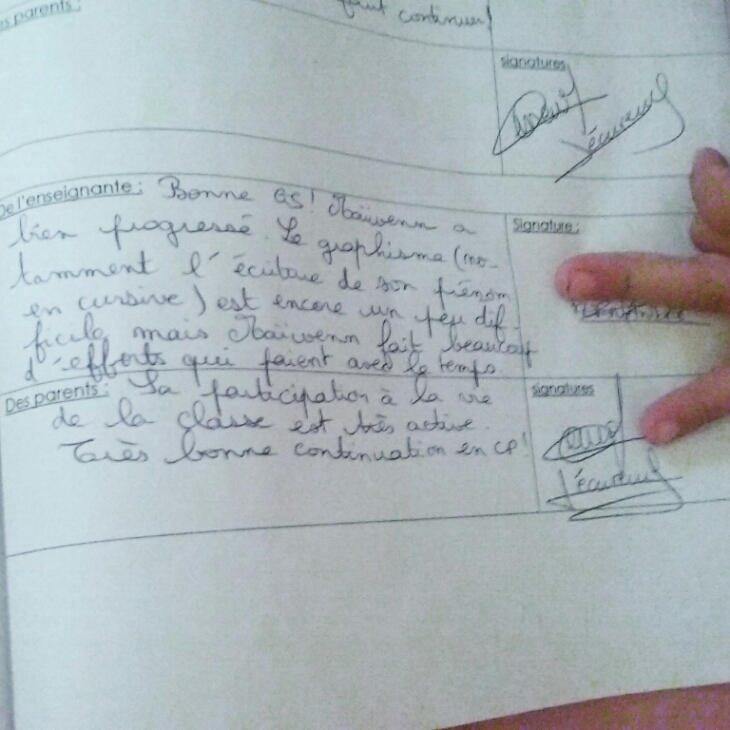 es parents :
faut continuer)
signatures
De l'enseignante : Bonne GS! Maïwenn a
bien progressé. Le graphisme (no-
tamment l'écriture de son prénom
en cursive) est encore un peu dif-
ficile mais Maïwenn fait beaucoup
d'efforts qui paient avec le temps.
Signature :
Des parents : Sa participation à la vie
de la classe est très active.
Très bonne continuation en CP!
signatures